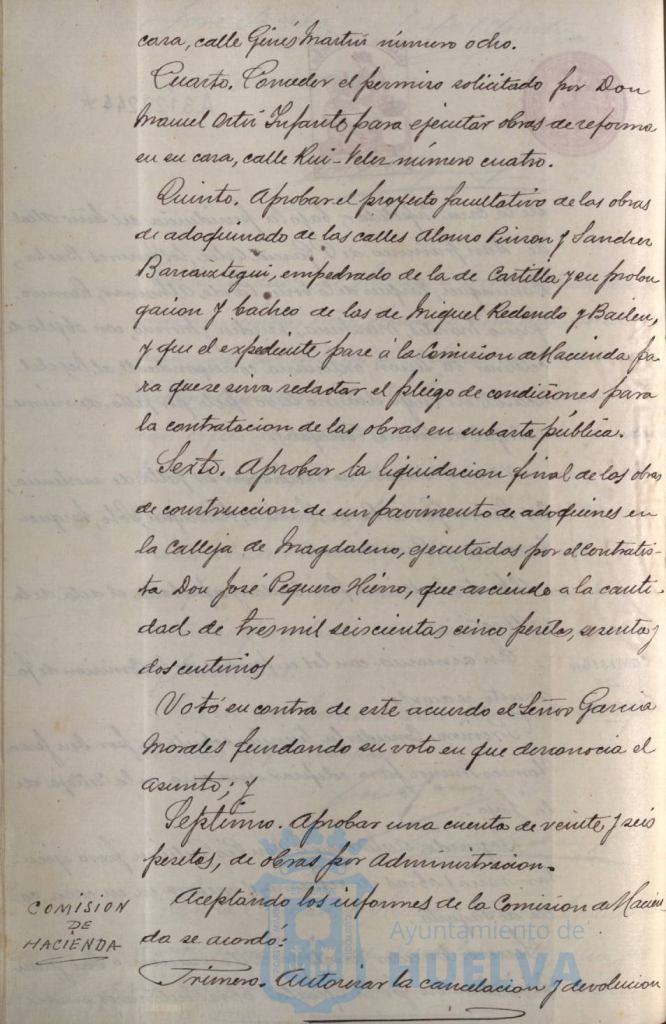 casa, calle Ginés Martín número ocho.
Cuarto. Conceder el permiso solicitado por Don
Manuel Ortiz Infante para ejecutar obras de reforma
en su casa, calle Rui-Velez número cuatro.
Quinto. Aprobar el proyecto facultativo de las obras
de adoquinado de las calles Alonso Pinzon y Sanchez
Barcaiztegui, empedrado de la de Castilla y su prolon
gacion y bacheo de las de Miguel Redondo y Bailen,
y que el expediente pase á la Comision de Hacienda pa
ra que se sirva redactar el pliego de condiciones para
la contratacion de las obras en subasta pública.
Sexto. Aprobar la liquidacion final de las obras
de construccion de un pavimento de adoquines en
la Calleja de Magdaleno, ejecutadas por el contratis-
ta Don José Peguero Hierro, que asciende a la canti-
dad de tres mil seiscientas cinco pesetas, sesenta y
dos centimos
Votó en contra de este acuerdo el Señor Garcia
Morales fundando su voto en que desconocia el
asunto; y
Septimo. Aprobar una cuenta de veinte y seis
pesetas, de obras por Administracion.
COMISION
DE
HACIENDA
Aceptando los informes de la Comision de Hacien-
da se acordó:
Primero. Autorizar la cancelacion y devolucion
Ayuntamiento de
HUELVA